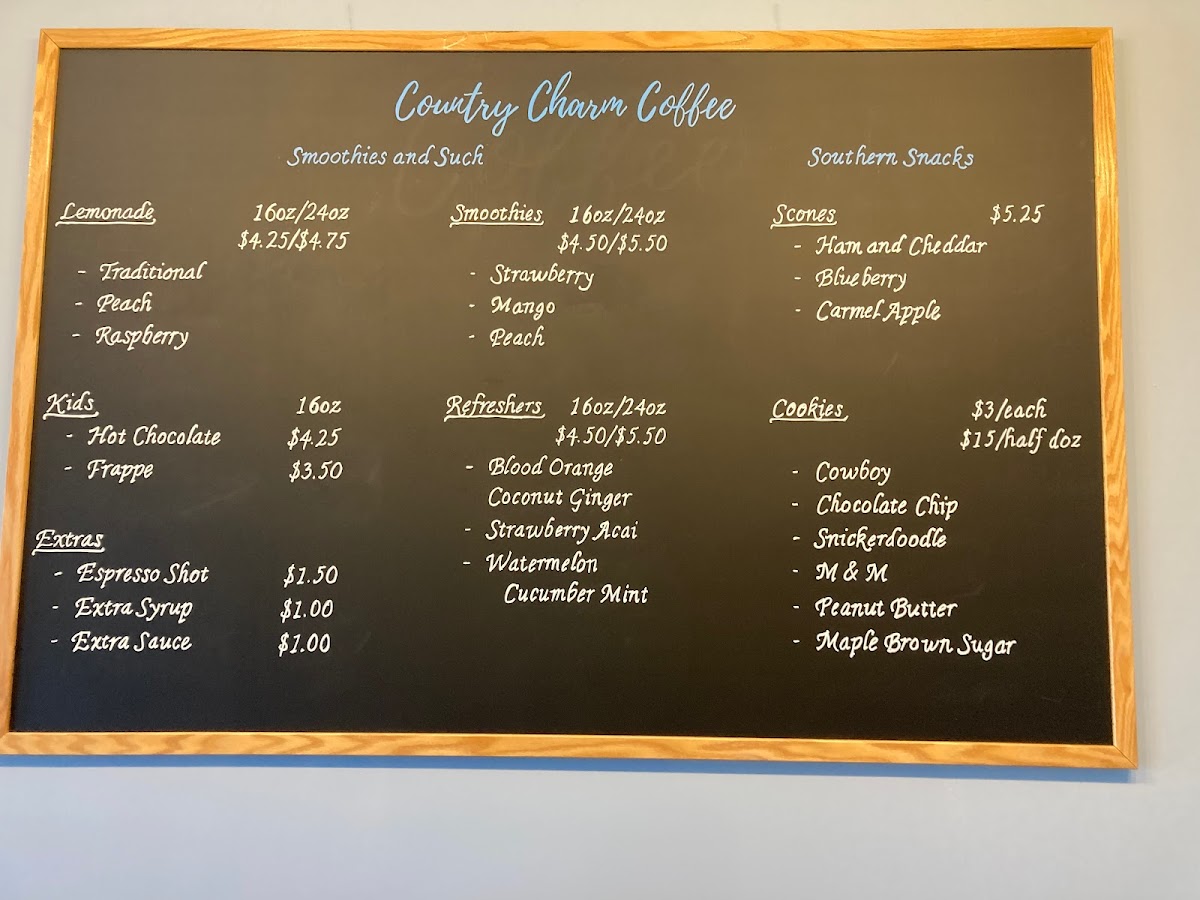 Country Charm Coffee
Smoothies and Such
Lemonade 16oz/24oz
$4.25/$4.75
- Traditional
- Peach
- Raspberry
Kids 16oz
- Hot Chocolate $4.25
- Frappe $3.50
Extras
- Espresso Shot $1.50
- Extra Syrup $1.00
- Extra Sauce $1.00
Smoothies 16oz/24oz
$4.50/$5.50
- Strawberry
- Mango
- Peach
Refreshers 16oz/24oz
$4.50/$5.50
- Blood Orange
Coconut Ginger
- Strawberry Acai
- Watermelon
Cucumber Mint
Southern Snacks
Scones $5.25
- Ham and Cheddar
- Blueberry
- Carmel Apple
Cookies $3/each
$15/half doz
- Cowboy
- Chocolate Chip
- Snickerdoodle
- M & M
- Peanut Butter
- Maple Brown Sugar